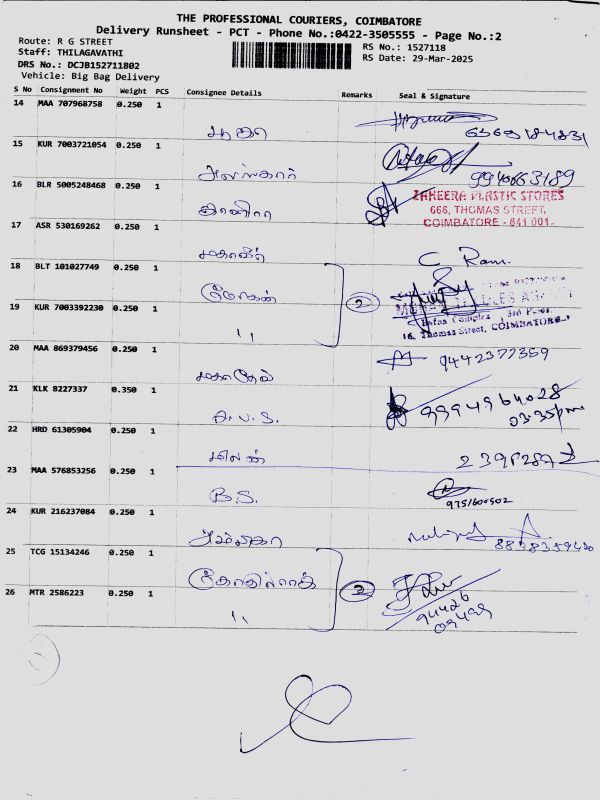 THE PROFESSIONAL COURIERS, COIMBATORE
Delivery Runsheet - PCT - Phone No.:0422-3505555 - Page No.:2
Route: R G STREET
RS No.: 1527118
Staff: THILAGAVATHI
RS Date: 29-Mar-2025
DRS No.: DCJB152711802
Vehicle: Big Bag Delivery
S No Consignment No Weight PCS Consignee Details Remarks Seal & Signature
14 MAA 707968758 0.250 1
15 KUR 7003721054 0.250 1
9940663189
16 BLR 5005248468 0.250 1
ZAHEERA PLASTIC STORES
666, THOMAS STREET,
COIMBATORE - 641 001.
17 ASR 530169262 0.250 1
மகாவீர் C Ram.
18 BLT 101027749 0.250 1
மோகன் 2
19 KUR 7003392230 0.250 1
" 16, Thomas Street, COIMBATORE-1
20 MAA 869379456 0.250 1
மகாதேவ் 9442377359
21 KLK 8227337 0.350 1
9994964028
03:35pm
22 HRD 61305904 0.250 1
மிலன்
23 MAA 576853256 0.250 1
B.S. 9751600502
24 KUR 216237084 0.250 1
அம்பிகா
25 TCG 15134246 0.250 1
2
26 MTR 2586223 0.250 1
" 94426
09499